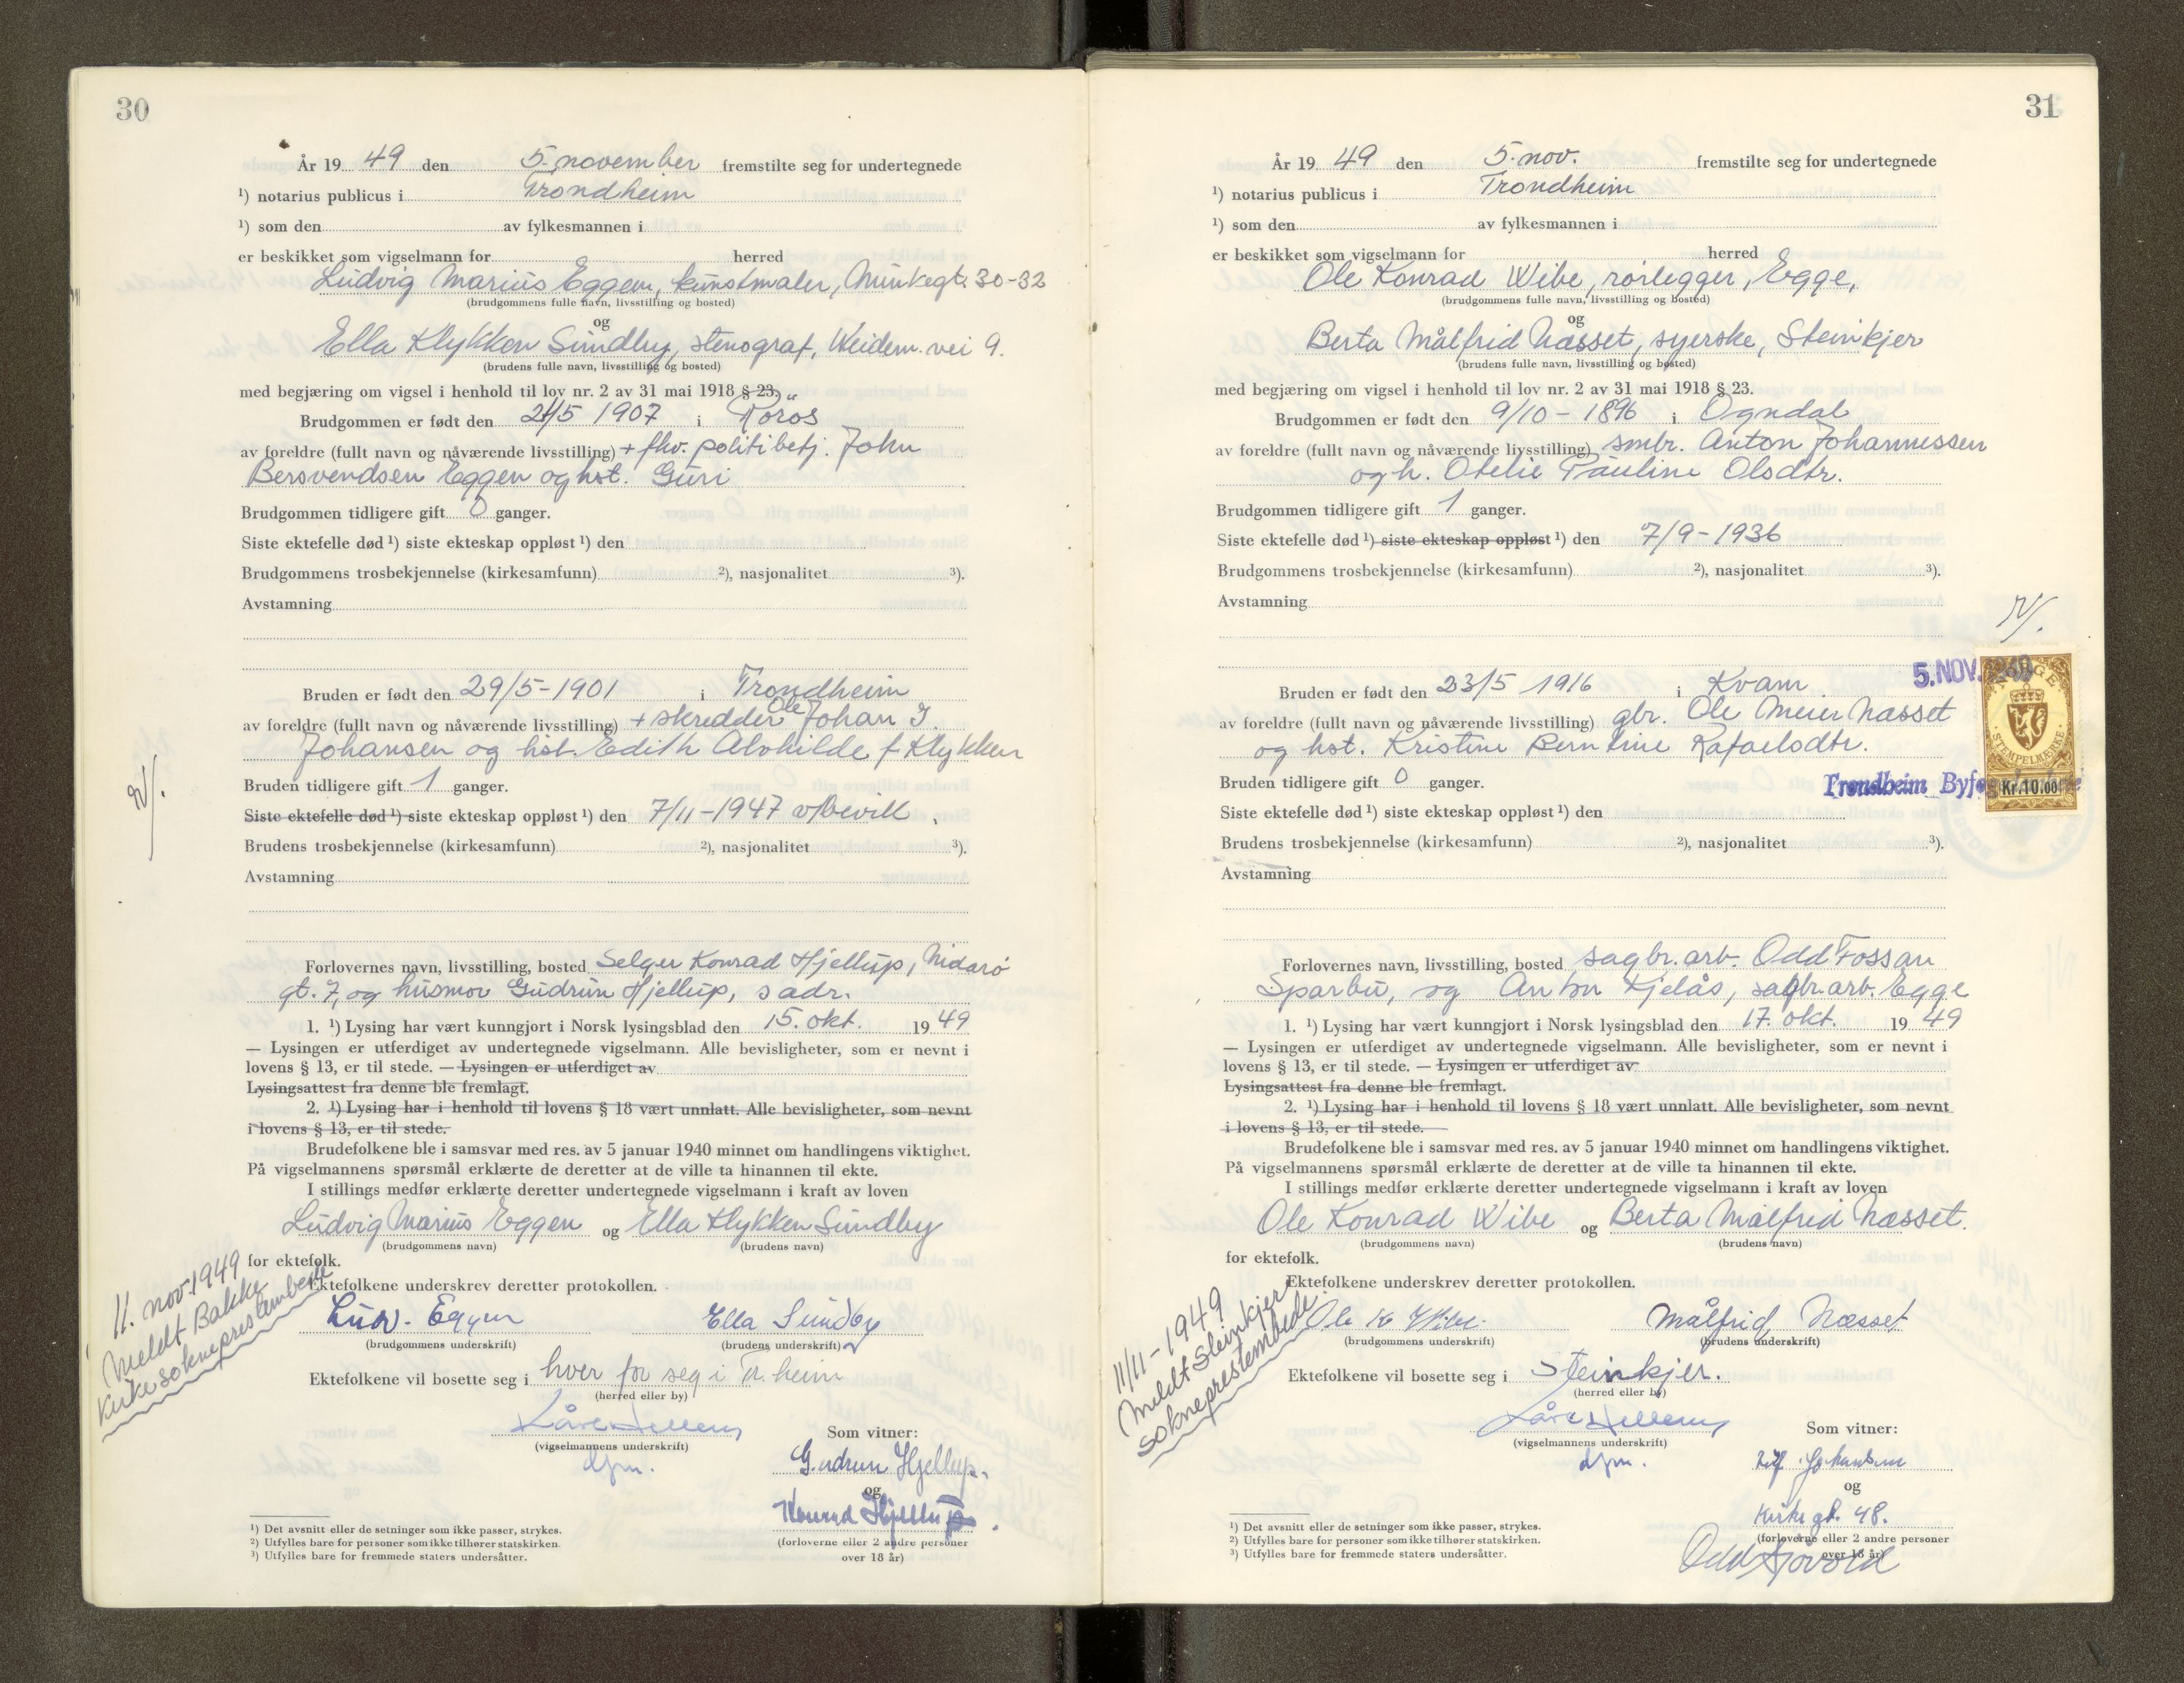 30
År 19 49 den 5. november fremstilte seg for undertegnede
¹) notarius publicus i Trondheim
¹) som den av fylkesmannen i
er beskikket som vigselmann for herred
Ludvig Marius Eggen, kunstmaler, Munkegt. 30-32
(brudgommens fulle navn, livsstilling og bosted)
og
Ella Klykken Sundby, stenograf, Weidem. vei 9.
(brudens fulle navn, livsstilling og bosted)
med begjæring om vigsel i henhold til lov nr. 2 av 31 mai 1918 § 23.
Brudgommen er født den 21/5 1907 i Röros
av foreldre (fullt navn og nåværende livsstilling) + fhv. politibetj. John
Bersvendsen Eggen og hst. Guri
Brudgommen tidligere gift 0 ganger.
Siste ektefelle død ¹) siste ekteskap oppløst ¹) den
Brudgommens trosbekjennelse (kirkesamfunn) ²), nasjonalitet ³).
Avstamning
Bruden er født den 29/5-1901 i Trondheim
av foreldre (fullt navn og nåværende livsstilling) + skredder Ole Johan J.
Johansen og hst. Edith Alvhilde f. Klykken
Bruden tidligere gift 1 ganger.
Siste ektefelle død ¹) siste ekteskap oppløst ¹) den 7/11-1947 v/bevill.
Brudens trosbekjennelse (kirkesamfunn) ²), nasjonalitet ³).
Avstamning
Forlovernes navn, livsstilling, bosted Selger Konrad Hjellup, Nidarø
gt. 7, og husmor Gudrun Hjellup, s adr.
1. ¹) Lysing har vært kunngjort i Norsk lysingsblad den 15. okt. 19 49
— Lysingen er utferdiget av undertegnede vigselmann. Alle bevisligheter, som er nevnt i
lovens § 13, er til stede. — Lysingen er utferdiget av
Lysingsattest fra denne ble fremlagt.
2. ¹) Lysing har i henhold til lovens § 18 vært unnlatt. Alle bevisligheter, som nevnt
i lovens § 13, er til stede.
Brudefolkene ble i samsvar med res. av 5 januar 1940 minnet om handlingens viktighet.
På vigselmannens spørsmål erklærte de deretter at de ville ta hinannen til ekte.
I stillings medfør erklærte deretter undertegnede vigselmann i kraft av loven
Ludvig Marius Eggen og Ella Klykken Sundby
(brudgommens navn) (brudens navn)
for ektefolk.
Ektefolkene underskrev deretter protokollen.
11. nov. 1949
Meldt Bakke
kirke sokneprestembede
Ludv. Eggen Ella Sundby
(brudgommens underskrift) (brudens underskrift)
Ektefolkene vil bosette seg i hver for seg i Tr. heim
(herred eller by)
(vigselmannens underskrift)
dfm.
Som vitner:
Gudrun Hjellup.
og
Konrad Hjellup.
(forloverne eller 2 andre personer
over 18 år)
¹) Det avsnitt eller de setninger som ikke passer, strykes.
²) Utfylles bare for personer som ikke tilhører statskirken.
³) Utfylles bare for fremmede staters undersåtter.
31
År 19 49 den 5. nov. fremstilte seg for undertegnede
¹) notarius publicus i Trondheim
¹) som den av fylkesmannen i
er beskikket som vigselmann for herred
Ole Konrad Wibe, rørlegger, Egge,
(brudgommens fulle navn, livsstilling og bosted)
og
Berta Målfrid Næsset, syerske, Steinkjer
(brudens fulle navn, livsstilling og bosted)
med begjæring om vigsel i henhold til lov nr. 2 av 31 mai 1918 § 23.
Brudgommen er født den 9/10-1896 i Ogndal
av foreldre (fullt navn og nåværende livsstilling) smbr. Anton Johannessen
og h. Otelie Pauline Olsdtr.
Brudgommen tidligere gift 1 ganger.
Siste ektefelle død ¹) siste ekteskap oppløst ¹) den 7/9-1936
Brudgommens trosbekjennelse (kirkesamfunn) ²), nasjonalitet ³).
Avstamning
Bruden er født den 23/5 1916 i Kvam
5. NOV.
NORGE
STEMPELMERKE
Kr. 10.00
av foreldre (fullt navn og nåværende livsstilling) gbr. Ole Meier Næsset
og hst. Kristine Berntine Rafaelsdtr.
Bruden tidligere gift 0 ganger.
Trondheim
Siste ektefelle død ¹) siste ekteskap oppløst ¹) den
Brudens trosbekjennelse (kirkesamfunn) ²), nasjonalitet ³).
Avstamning
Forlovernes navn, livsstilling, bosted sagbr. arb. Odd Fossan
Sparbu, og Anton Kjelås, sagbr. arb. Egge
1. ¹) Lysing har vært kunngjort i Norsk lysingsblad den 17. okt. 19 49
— Lysingen er utferdiget av undertegnede vigselmann. Alle bevisligheter, som er nevnt i
lovens § 13, er til stede. — Lysingen er utferdiget av
Lysingsattest fra denne ble fremlagt.
2. ¹) Lysing har i henhold til lovens § 18 vært unnlatt. Alle bevisligheter, som nevnt
i lovens § 13, er til stede.
Brudefolkene ble i samsvar med res. av 5 januar 1940 minnet om handlingens viktighet.
På vigselmannens spørsmål erklærte de deretter at de ville ta hinannen til ekte.
I stillings medfør erklærte deretter undertegnede vigselmann i kraft av loven
Ole Konrad Wibe og Berta Målfrid Næsset.
(brudgommens navn) (brudens navn)
for ektefolk.
Ektefolkene underskrev deretter protokollen.
11/11-1949
Meldt Steinkjer
sokneprestembede.
Ole K Wibe. Målfrid Næsset
(brudgommens underskrift) (brudens underskrift)
Ektefolkene vil bosette seg i Steinkjer.
(herred eller by)
(vigselmannens underskrift)
dfm.
Som vitner:
Johansen
og
Kirkegt. 48.
(forloverne eller 2 andre personer
over 18 år)
Odd
¹) Det avsnitt eller de setninger som ikke passer, strykes.
²) Utfylles bare for personer som ikke tilhører statskirken.
³) Utfylles bare for fremmede staters undersåtter.